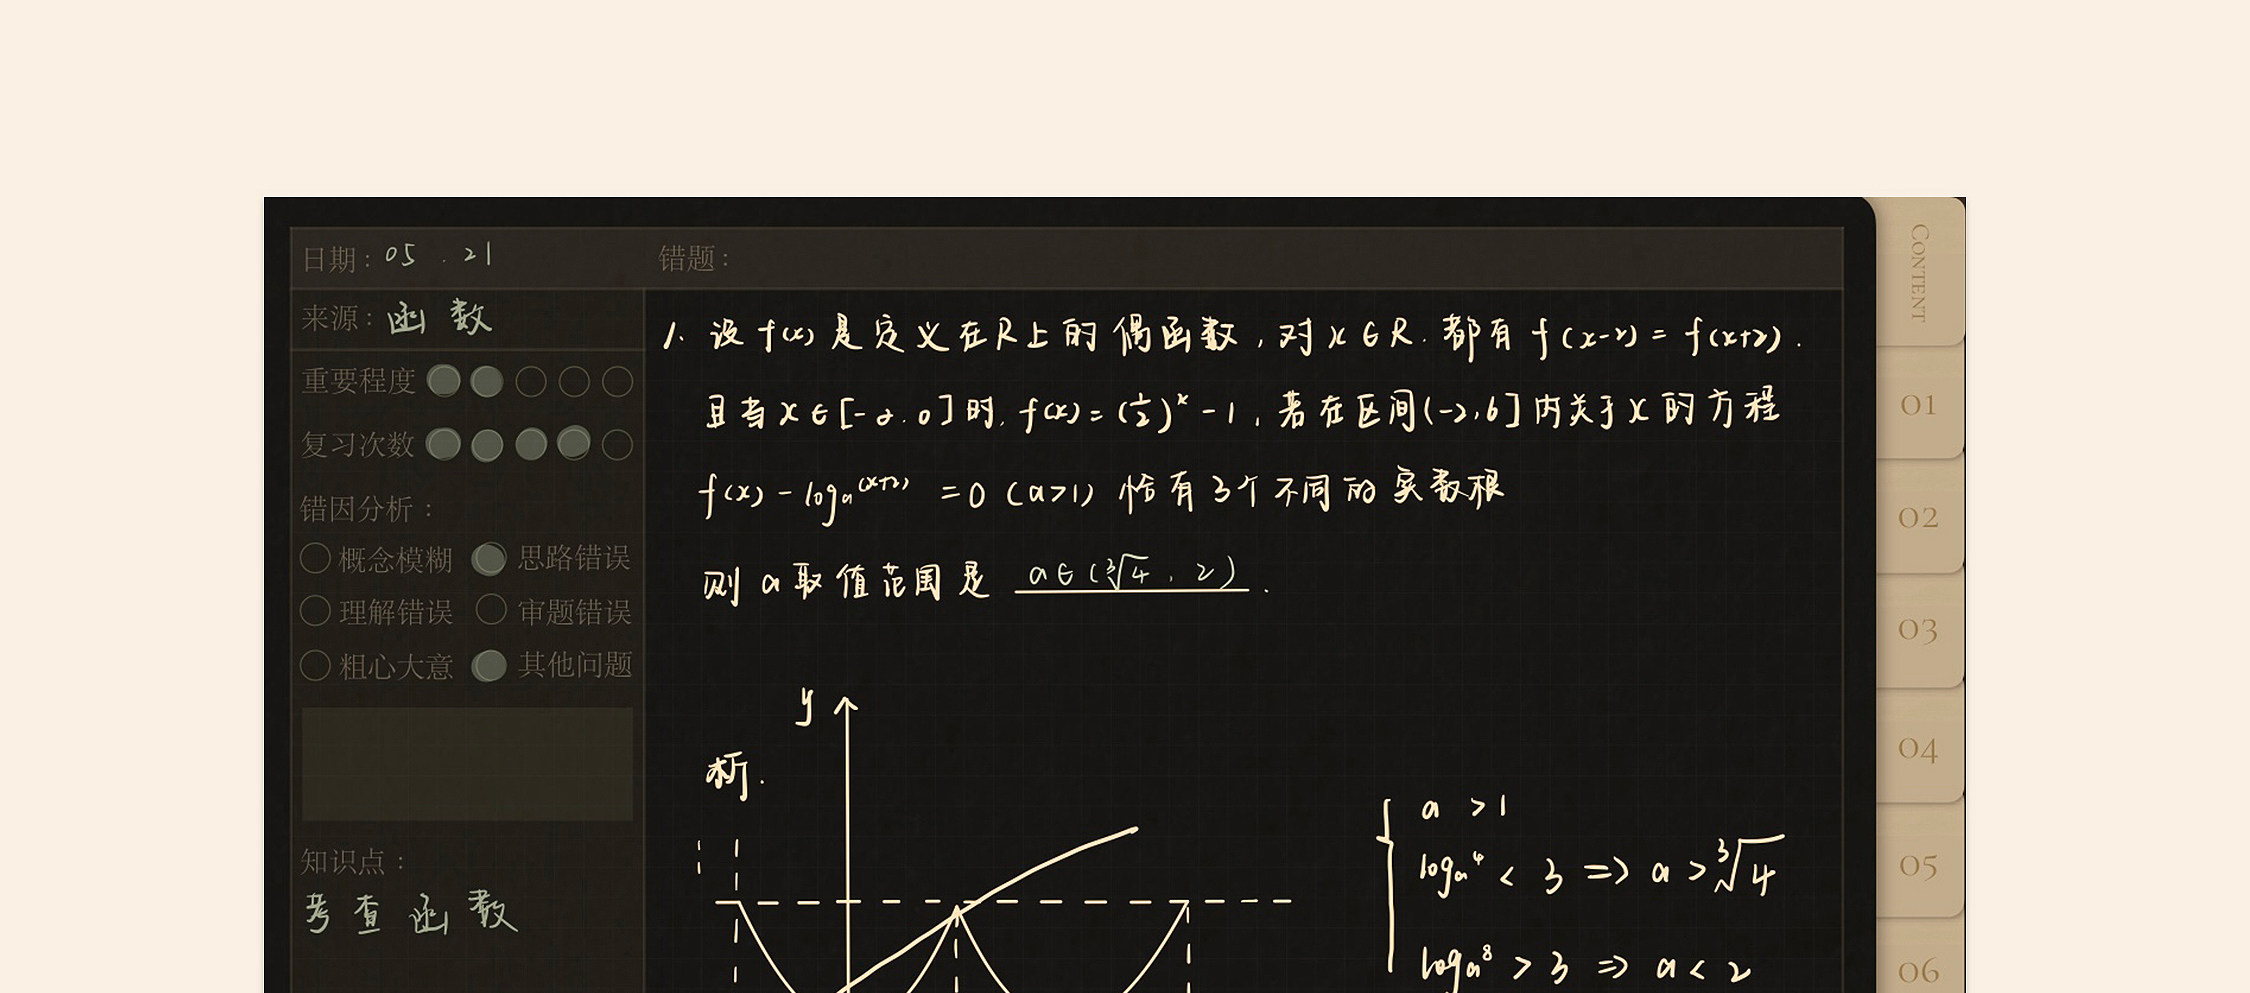 日期： 05 . 21
错题：
来源： 函数
重要程度
复习次数
错因分析：
概念模糊 思路错误
理解错误 审题错误
粗心大意 其他问题
知识点：
考查函数
1. 设 f(x) 是定义在R上的偶函数，对 x∈R. 都有 f(x-2) = f(x+2).
且当 x∈[-2.0]时, f(x) = (1/2)^x - 1, 若在区间(-2,6]内关于x的方程
f(x) - logₐ(x+2) = 0 (a>1) 恰有3个不同的实数根
则 a 取值范围是 a∈(∛4, 2).
y
析.
a > 1
logₐ4 < 3 => a > ∛4
logₐ8 > 3 => a < 2
CONTENT
01
02
03
04
05
06